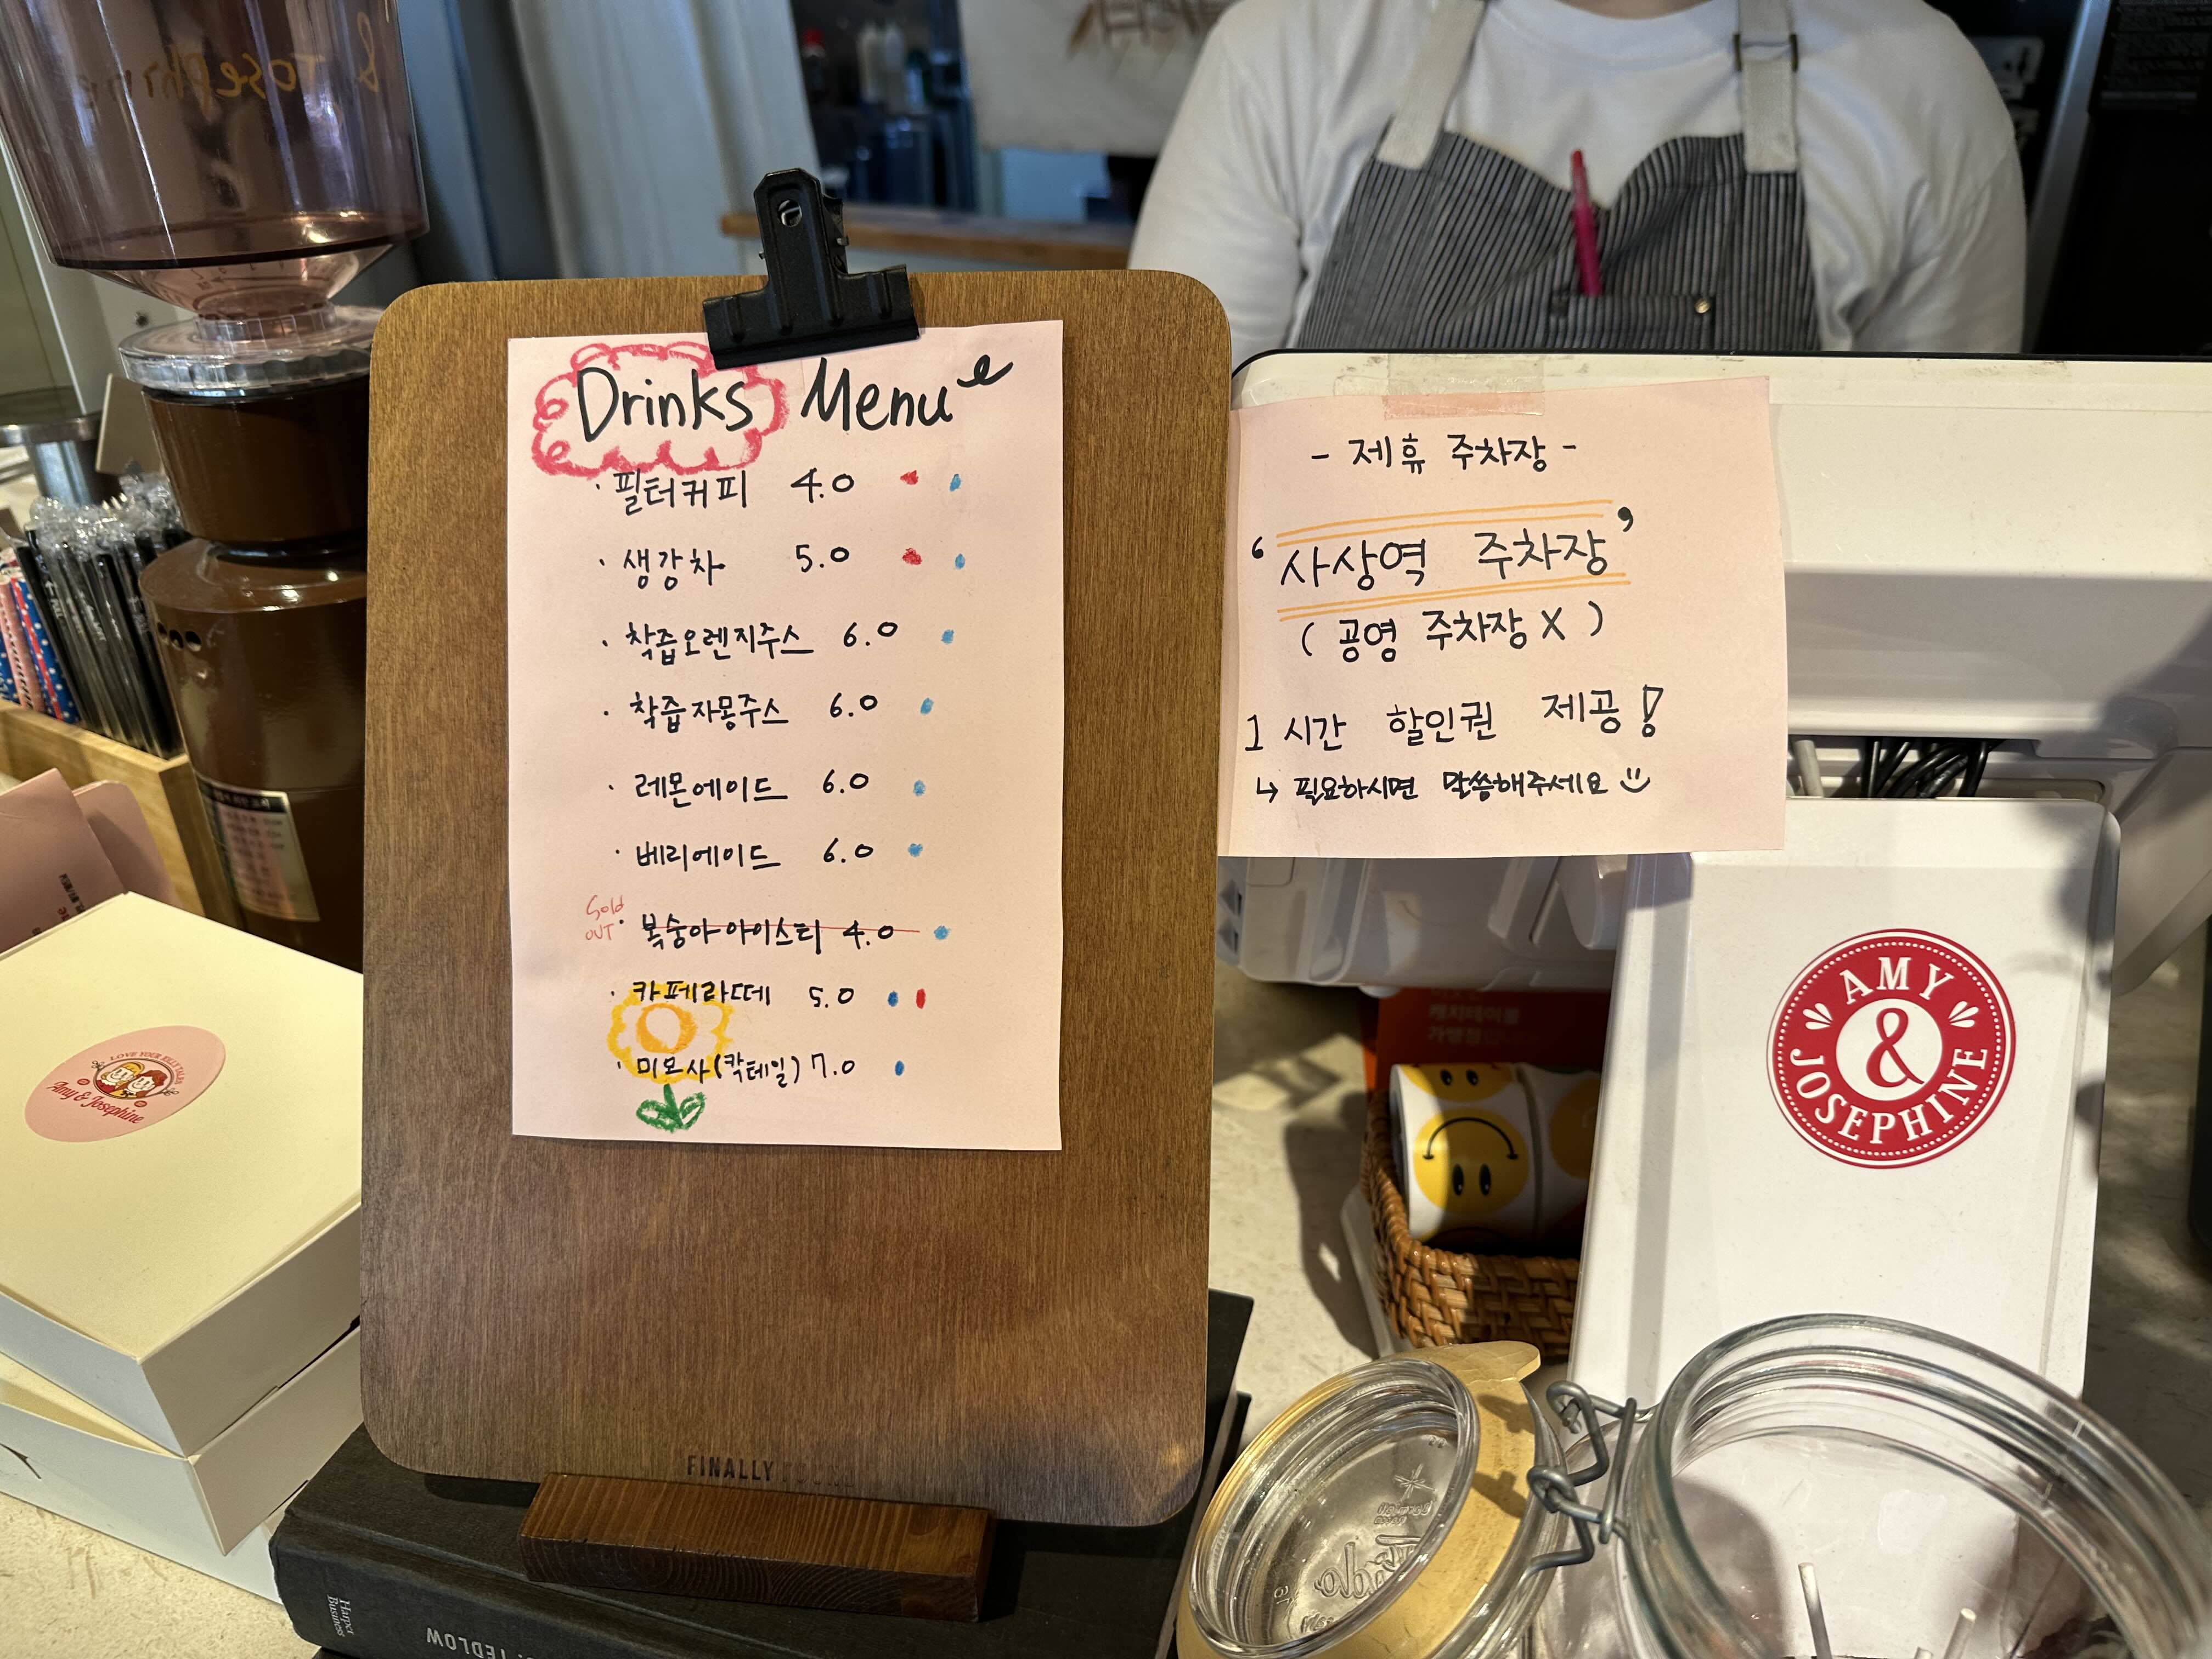 Drinks Menu
· 필터커피 4.0
· 생강차 5.0
· 착즙오렌지주스 6.0
· 착즙자몽주스 6.0
· 레몬에이드 6.0
· 베리에이드 6.0
Sold OUT · 복숭아 아이스티 4.0
· 카페라떼 5.0
· 미모사(칵테일) 7.0
FINALLY
- 제휴 주차장 -
‘사상역 주차장’
( 공영 주차장 X )
1 시간 할인권 제공!
↳ 필요하시면 말씀해주세요
AMY
&
JOSEPHINE
캐치테이블
가맹점
LOVE YOUR JELLY TEARS
Amy & Josephine
& Josephine
Harper
Business
TEDLOW